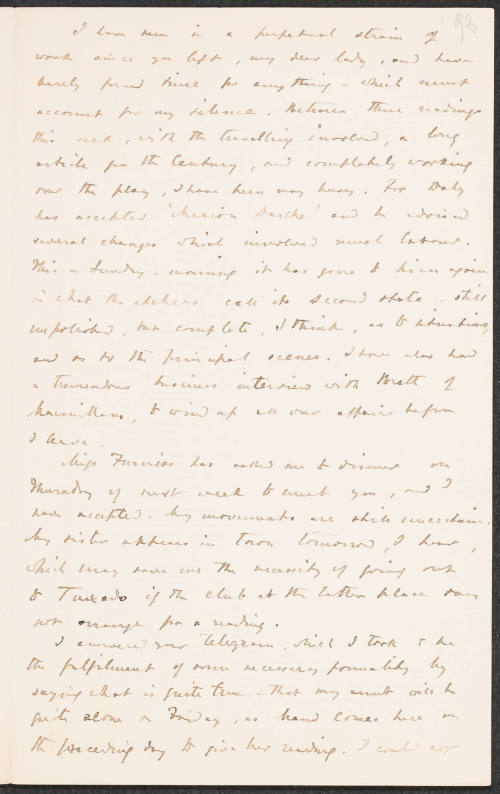 92
I have been in a perpetual strain of
work since you left, my dear lady, and have
barely found time for anything – which must
account for my silence. Between three readings
this week, with the travelling involved, a long
article for the Century, and completely working
over the play, I have been very busy. For Daly
has accepted 'Marion Darche' and he advised
several changes which involved much labour.
This – Sunday – morning it has gone to him again
in what the etchers call its second state – still
unpolished, but complete, I think, as to situations,
and as to the principal scenes. I have also had
a tremendous business interview with Brett of
Macmillans, to wind up all our affairs before
I leave.
Miss Furniss has asked me to dinner on
Thursday of next week to meet you, and I
have accepted. My movements are still uncertain.
My sister appears in town tomorrow, I hear,
which may save me the necessity of going out
to Tuxedo if the club at the latter place does
not arrange for a reading.
I answered your telegram, which I took to be
the fulfilment of some necessary formality by
saying what is quite true – that my aunt will be
quite alone on Friday, as hand comes here on
the preceding day to give her reading. I could not